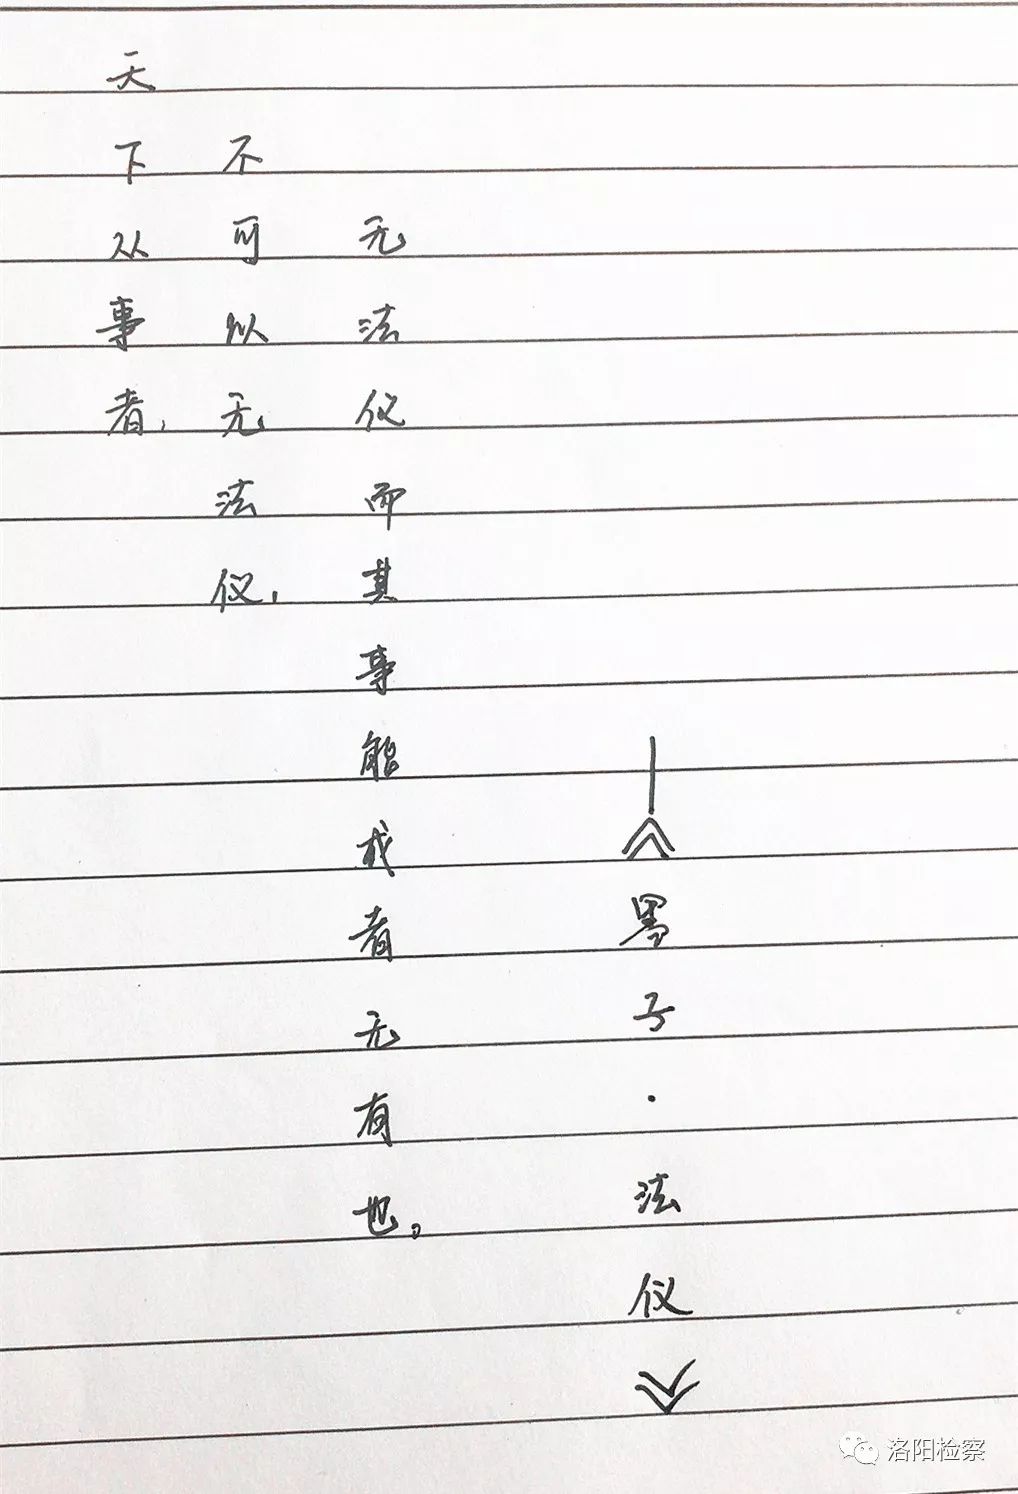 天下从事者，
不可以无法仪，
无法仪而其事能成者无有也。
——《墨子·法仪》
洛阳检察